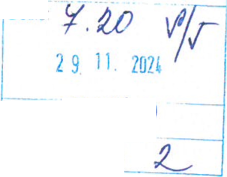 7.20
29. 11. 2024
2